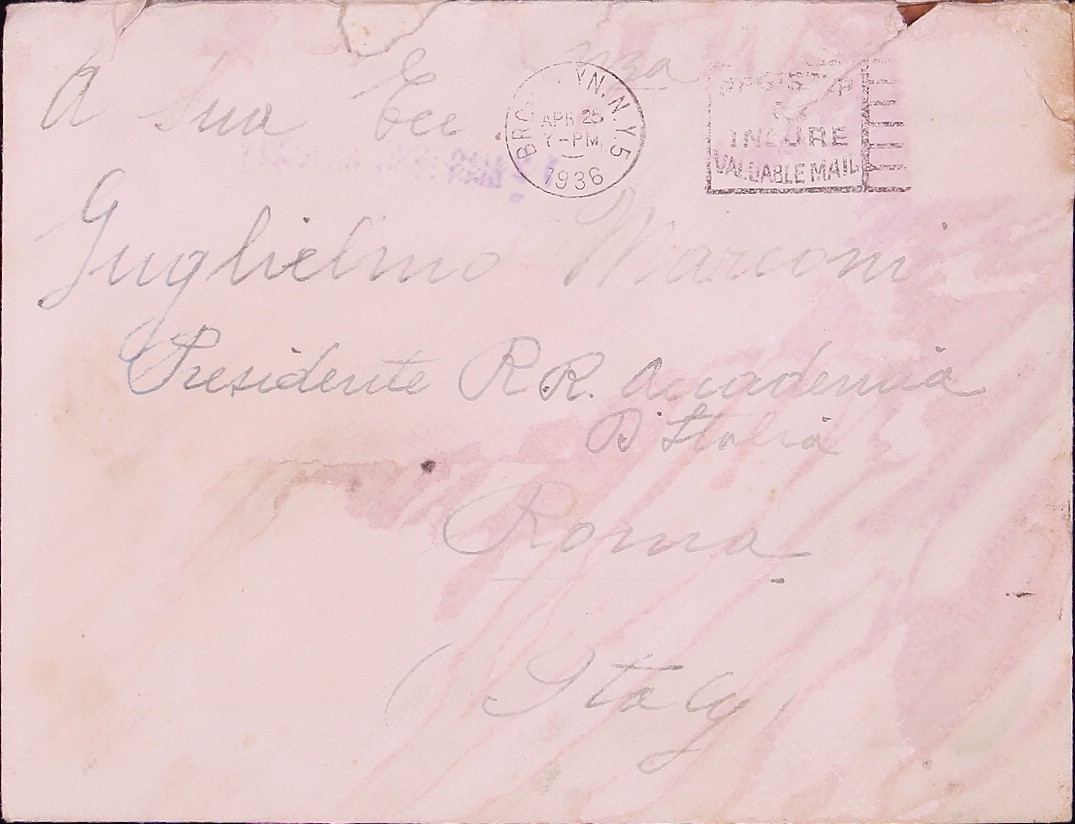 A Sua Ecc nza
BRO YN, N.Y. 5
APR 25
7-PM
1936
REGISTER
INSURE
VALUABLE MAIL
Guglielmo Marconi
Presidente R.R. Accademia
D'Italia
Roma
(Italy)